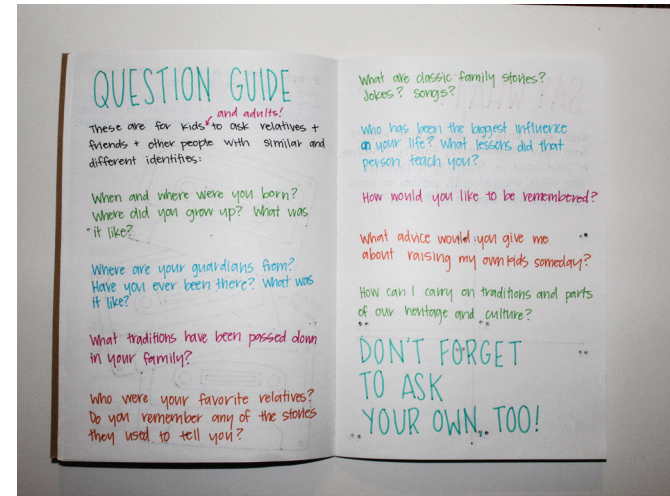 QUESTION GUIDE
and adults!
These are for kids to ask relatives +
friends + other people with similar and
different identities:
When and where were you born?
Where did you grow up? What was
it like?
Where are your guardians from?
Have you ever been there? What was
it like?
What traditions have been passed down
in your family?
Who were your favorite relatives?
Do you remember any of the stories
they used to tell you?
What are classic family stories?
Jokes? Songs?
Who has been the biggest influence
on your life? What lessons did that
person teach you?
How would you like to be remembered?
What advice would you give me
about raising my own kids someday?
How can I carry on traditions and parts
of our heritage and culture?
DON'T FORGET
TO ASK
YOUR OWN, TOO!